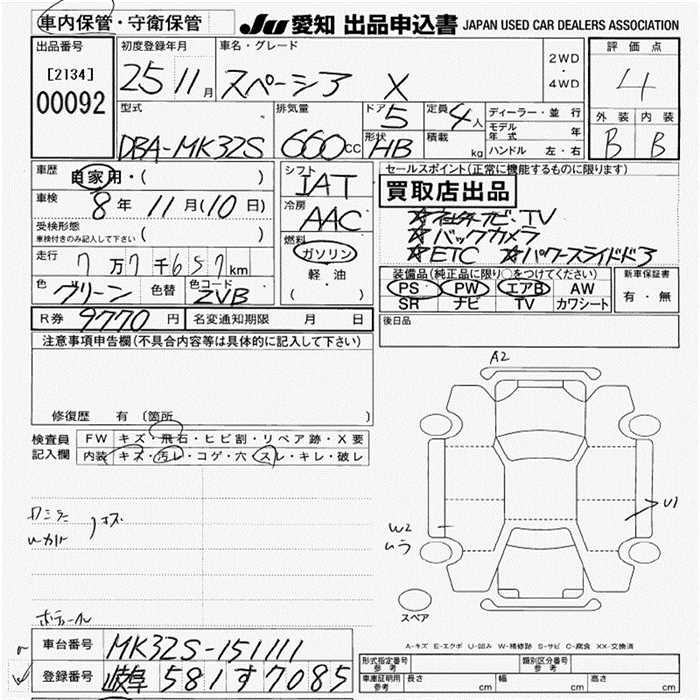 車内保管・守衛保管
JU 愛知 出品申込書 JAPAN USED CAR DEALERS ASSOCIATION
出品番号
[2134]
00092
初度登録年月
25 11月
車名・グレード
スペーシア X
2WD
・
4WD
評価点
4
外装 内装
B B
型式
DBA-MK32S
排気量
660cc
ドア 5
形状 HB
定員 4人
積載 kg
ディーラー・並行
モデル年式 年
ハンドル 左・右
車歴
自家用・( )
車検
8年 11月(10日)
受検形態
車検付きのみ記入して下さい ( )
走行
7万7千657km
色 グリーン 色替
色コード ZVB
シフト
IAT
冷房
AAC
燃料
ガソリン
軽油
( )
セールスポイント(正常に機能するものに限ります)
買取店出品
ナビ・TV
☆バックカメラ
☆ETC ☆パワースライドド
装備品(純正品に限り○をつけてください)
PS PW エアB AW
SR ナビ TV カワシート
新車保証書
有・無
後日品
R券 9770円
名変通知期限 月 日
注意事項申告欄(不具合内容等は具体的に記入して下さい)
修復歴 有(箇所 )
検査員記入欄
FW キズ・飛石・ヒビ割・リペア跡・X要
内装 キズ・汚レ・コゲ・穴・スレ・キレ・破レ
A2
U1
W2
ムラ
スペア
A-キズ E-エクボ U-凹み W-補修跡 S-サビ C-腐食 XX-交換済
車台番号 MK32S-151111
登録番号 岐阜 581 す 7085
形式指定番号 参考
類別区分番号 参考
車庫証明用 参考
長さ cm 幅 cm 高さ cm